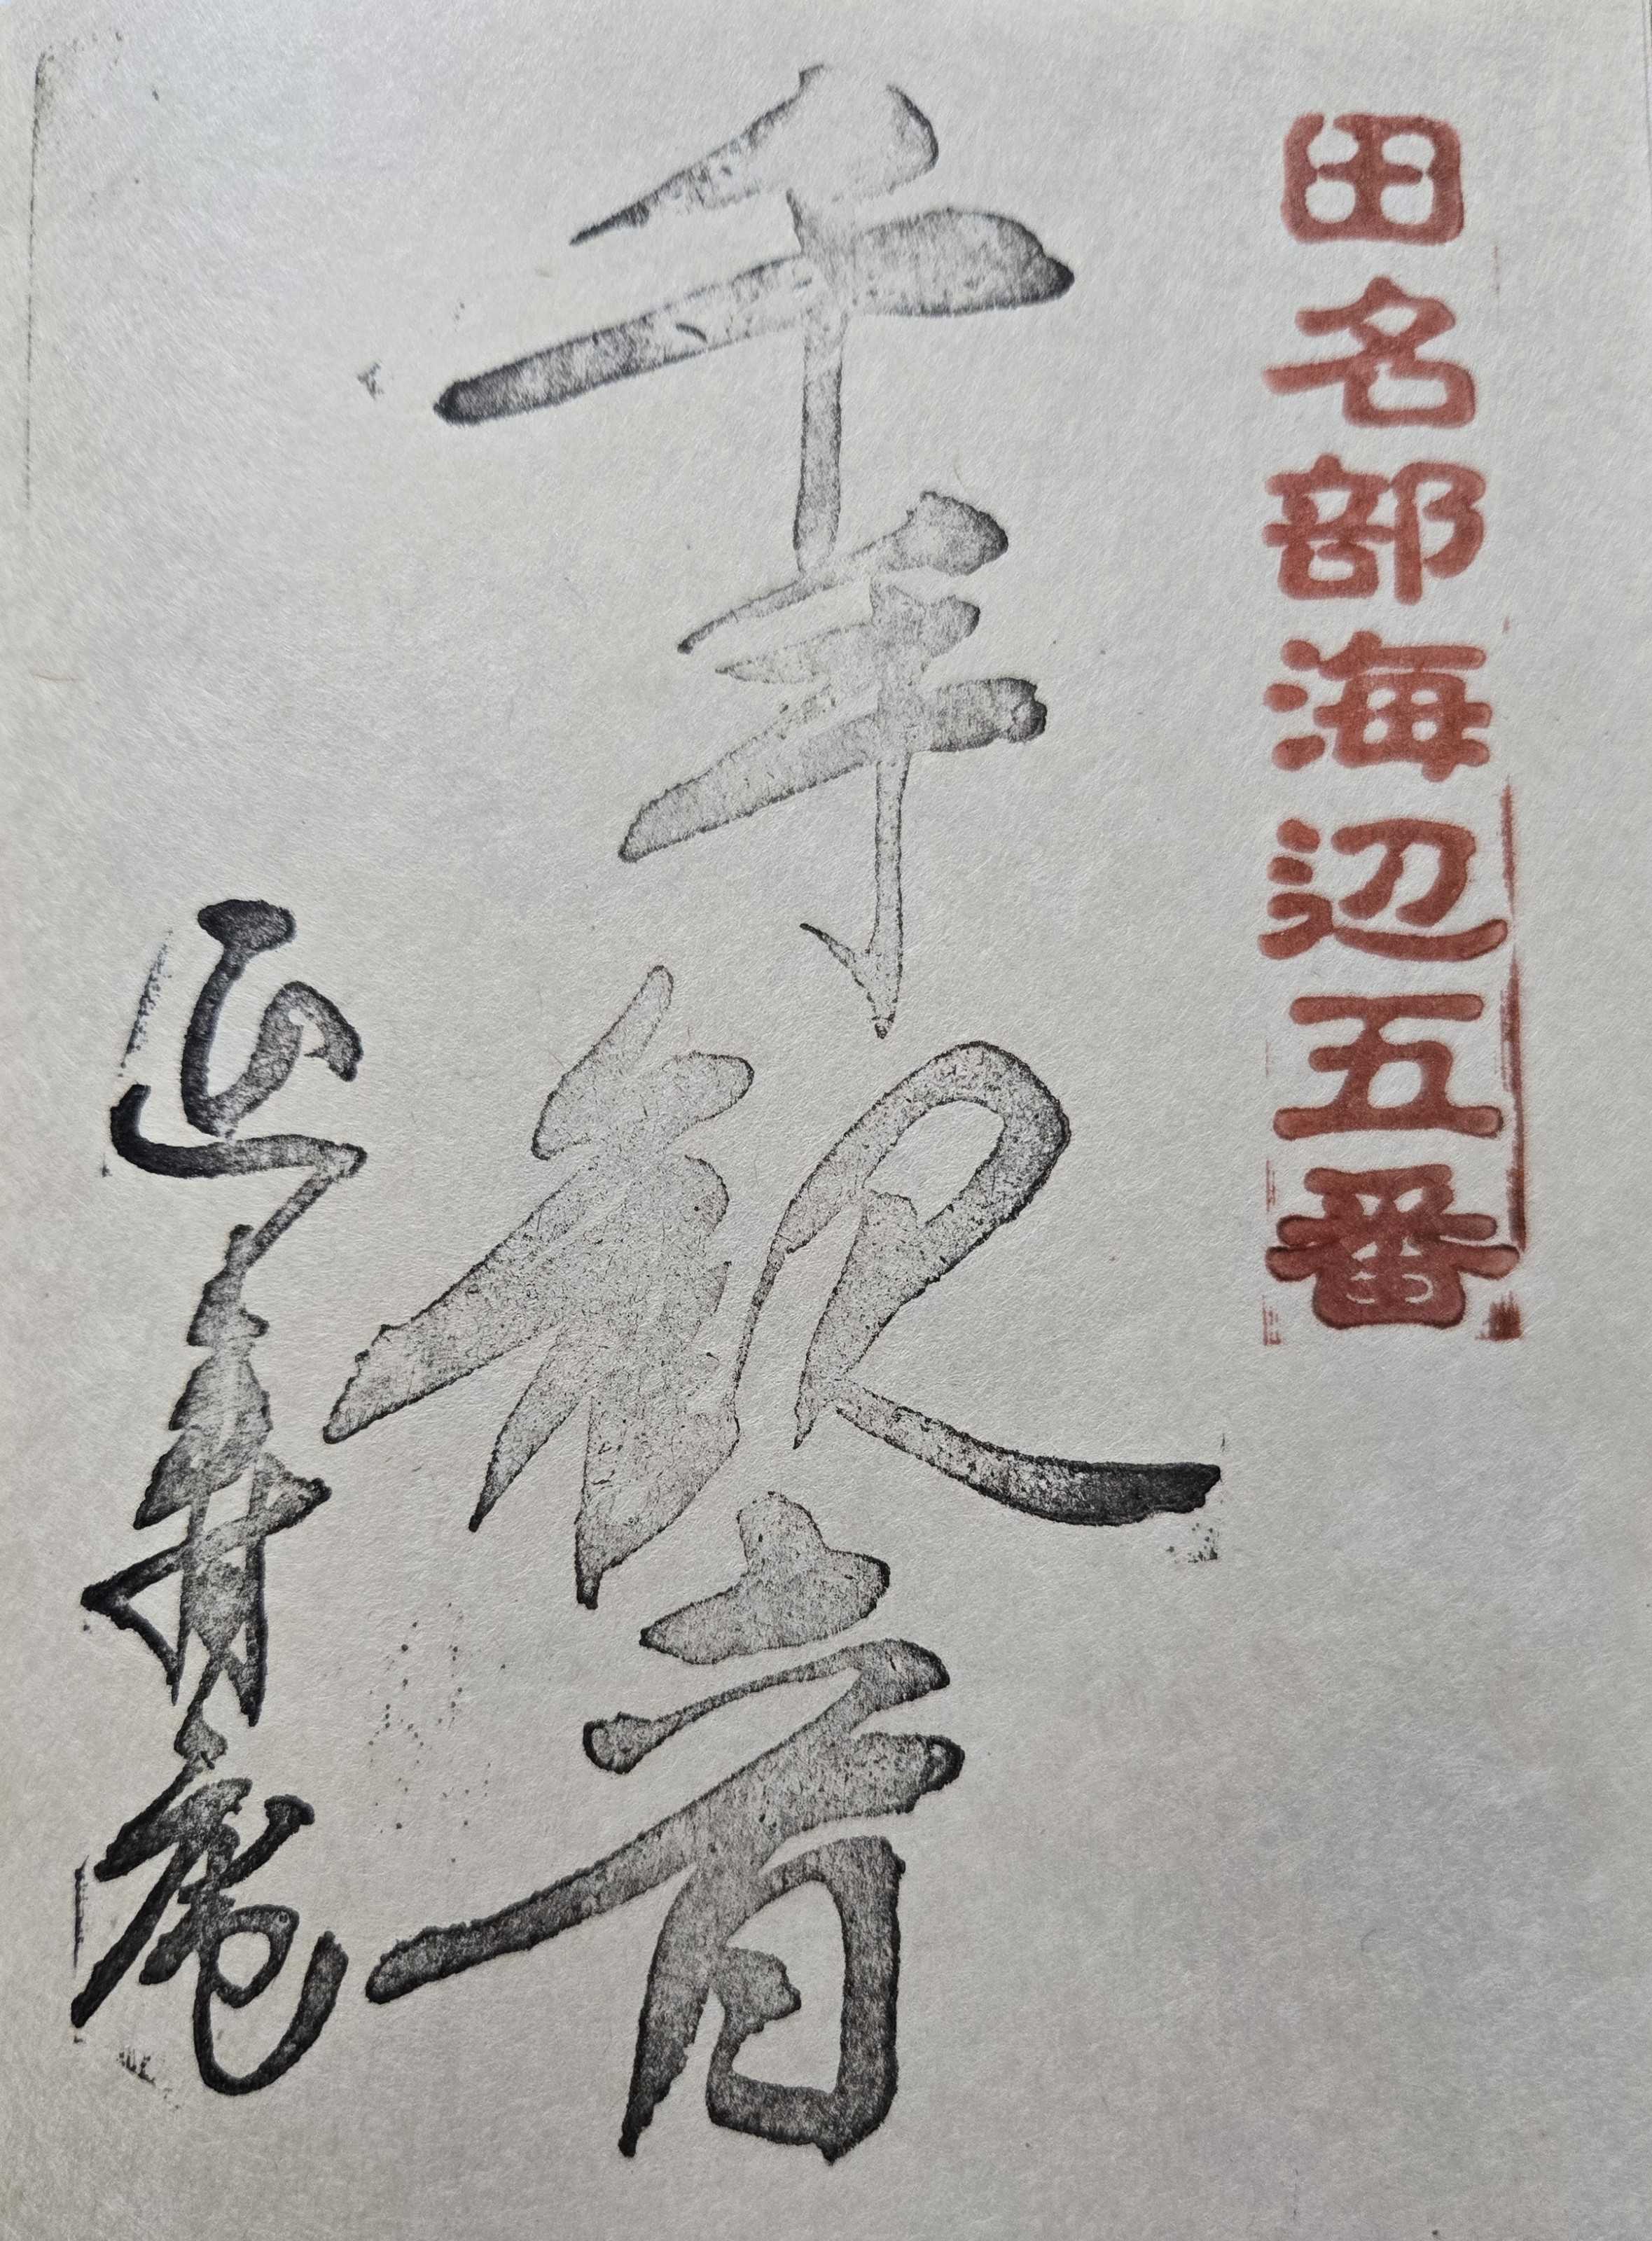 田名部海辺五番
千手観音
庵